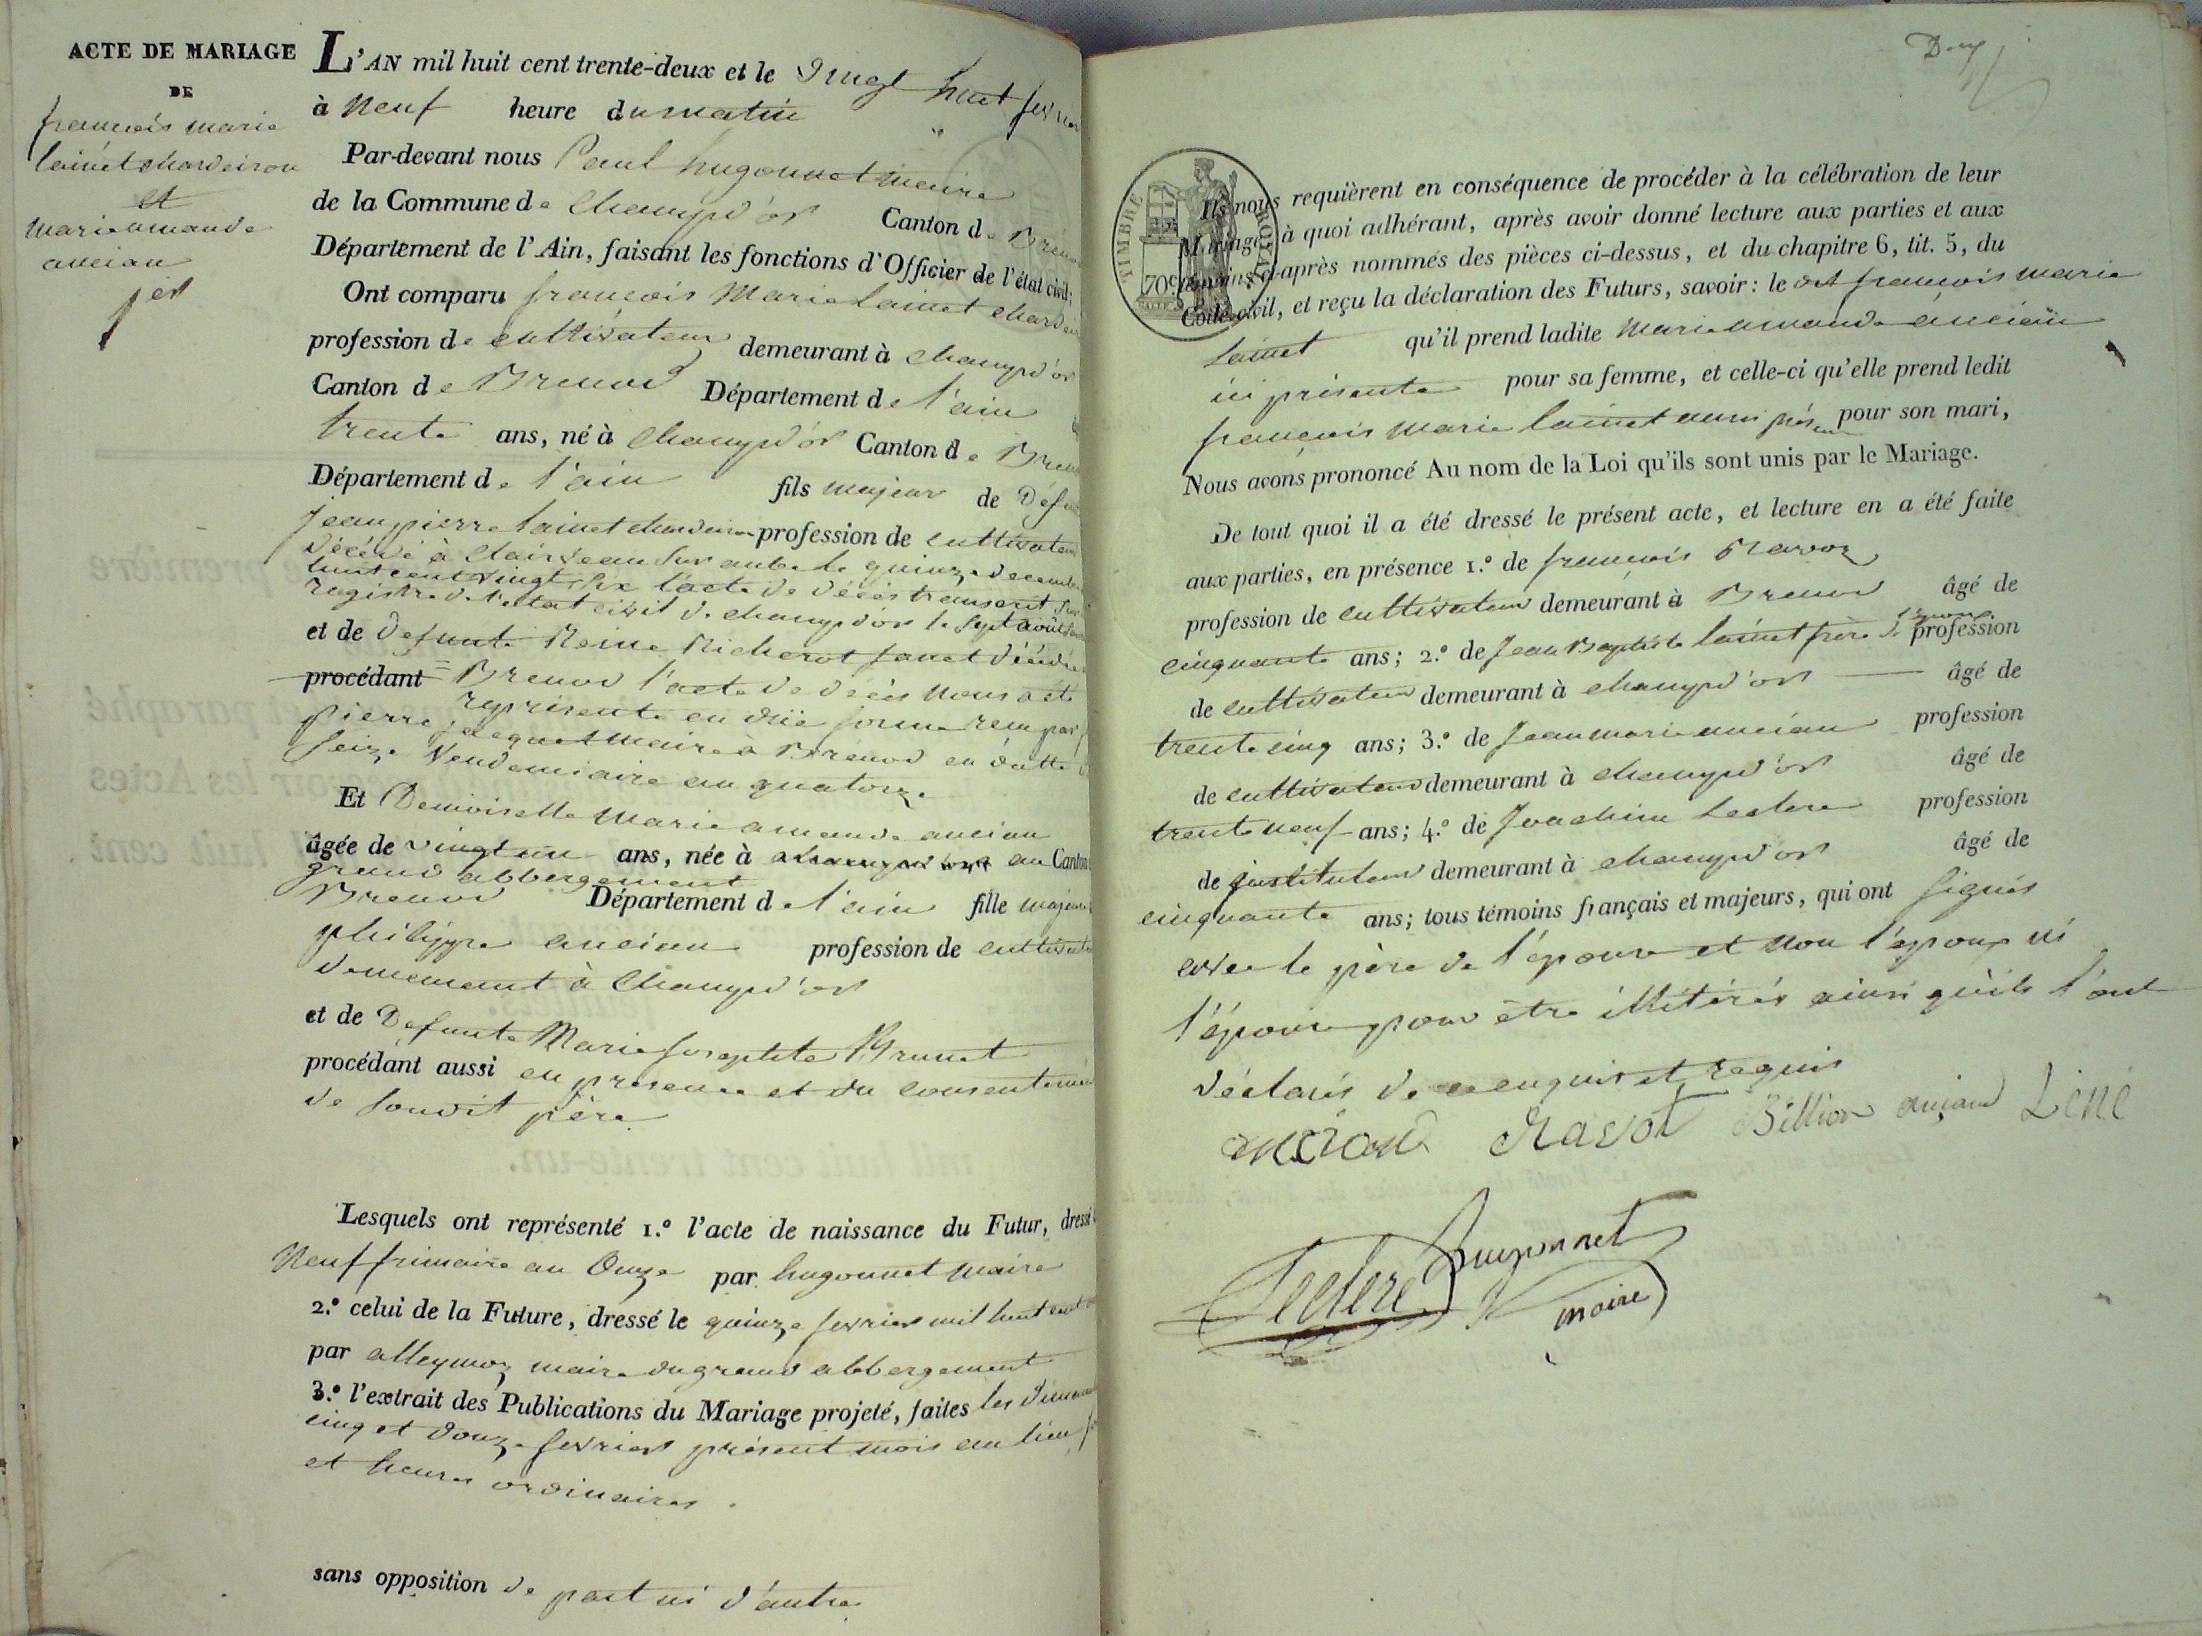 ACTE DE MARIAGE
DE
françois marie
lainet chardeiron
et
marie amande
ancian
1er
L'AN mil huit cent trente-deux et le vingt huit fevrier
à neuf heure du matin
Par-devant nous Paul hugonnet maire
de la Commune de Champd'or Canton de Brenod
Département de l'Ain, faisant les fonctions d'Officier de l'état civil;
Ont comparu françois Marie lainet chardei
profession de cultivateur demeurant à champd'or
Canton de Brenod Département de l'ain
trente ans, né à champd'or Canton de Bren
Département de l'ain fils majeur de Defu
Jean pierre lainet chardeiron profession de cultivateur
décédé à clairveau sur aube le quinze decemb
huit cent vingt six l'acte de décès transcrit sur
registre de l'etat civil de champd'or le sept août
et de Defunte Reine Richerot janet décédée
procédant Brenod l'acte de décès nous a été
représenté en due forme rem par
pierre jaquet maire à Brenod en datte
seize Vendemiaire an quatorze
Et Demoiselle Marie amande ancian
âgée de vingt un ans, née à au Canton
grand abbergement
Brenod Département de l'ain fille majeure
philippe ancian profession de cultivate
demeurant à Champd'or
et de Defunte Marie Josephte Brunet
procédant aussi en presence et du consenteme
de soudit père
Lesquels ont représenté 1.º l'acte de naissance du Futur, dressé
Neuf frimaire an Onze par hugonnet maire
2.º celui de la Future, dressé le quinze fevrier mil huit cent
par alleymoz maire du grand abbergement
3.º l'extrait des Publications du Mariage projeté, faites les dimanc
cinq et douze fevrier présent mois au lieu
et heures ordinaires.
sans opposition de part ni d'autre
TIMBRE ROYAL
70c
Ils nous requièrent en conséquence de procéder à la célébration de leur
Mariage, à quoi adhérant, après avoir donné lecture aux parties et aux
témoins ci-après nommés des pièces ci-dessus, et du chapitre 6, tit. 5, du
Code civil, et reçu la déclaration des Futurs, savoir: le dit françois marie
lainet qu'il prend ladite marie amande ancian
ici présente pour sa femme, et celle-ci qu'elle prend ledit
françois marie lainet aussi présent pour son mari,
Nous avons prononcé Au nom de la Loi qu'ils sont unis par le Mariage.
De tout quoi il a été dressé le présent acte, et lecture en a été faite
aux parties, en présence 1.º de françois Ravoz
profession de cultivateur demeurant à Brenod âgé de
cinquante ans; 2.º de Jean Baptiste lainet frère de l'époux profession
de cultivateur demeurant à champd'or âgé de
trente cinq ans; 3.º de Jean marie ancian profession
de cultivateur demeurant à champd'or âgé de
trente neuf ans; 4.º de Joachim Leclere profession
de justituteur demeurant à champd'or âgé de
cinquante ans; tous témoins français et majeurs, qui ont signés
avec le père de l'épouse et non l'époux ni
l'épouse pour être illitérés ainsi qu'ils l'ont
déclarés de ce enquis et requis
ancian Ravot Billion ancian Léné
Leclere hugonnet
maire